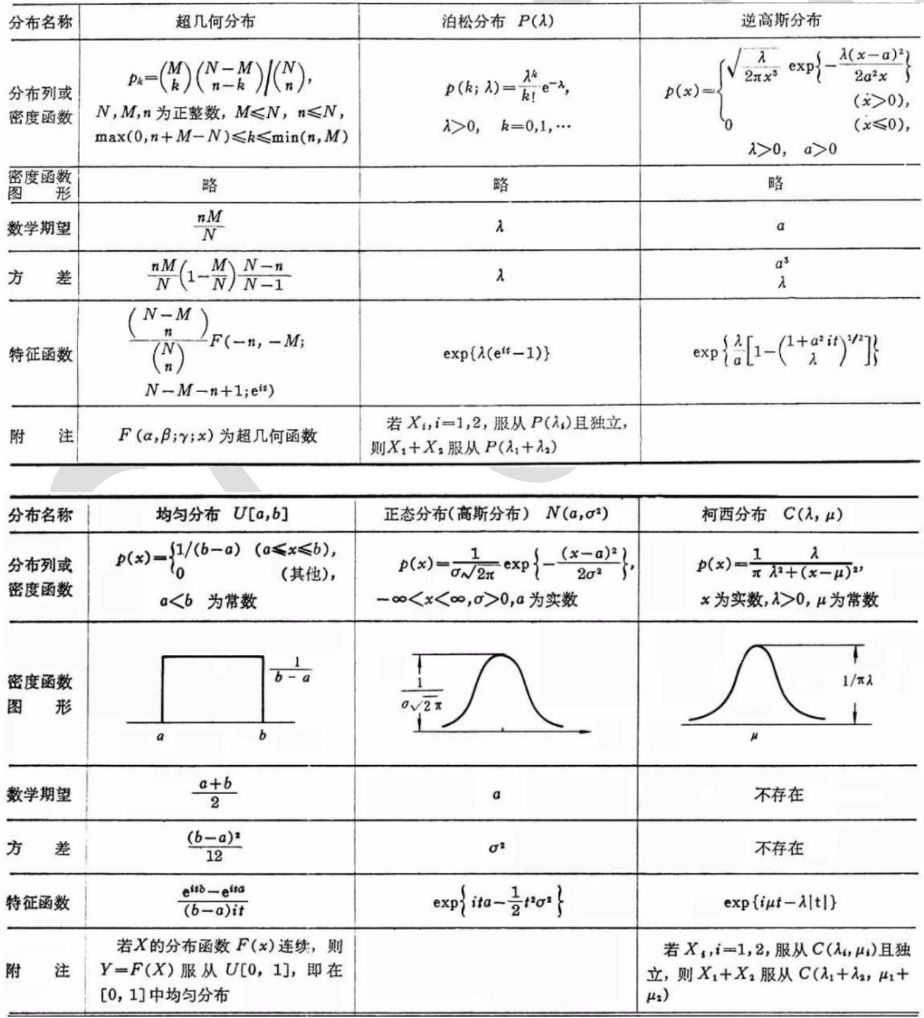 分布名称 超几何分布 泊松分布 P(λ) 逆高斯分布
分布列或密度函数
p_k=(M k)(N−M n−k)/(N n),
N,M,n 为正整数, M≤N, n≤N,
max(0,n+M−N)≤k≤min(n,M)
p(k; λ)=λ^k/k! e^{−λ},
λ>0, k=0,1,⋯
p(x)={√(λ/2πx³) exp{−λ(x−a)²/2a²x}
(x>0),
0 (x≤0),
λ>0, a>0
密度函数图形 略 略 略
数学期望 nM/N λ a
方差 nM/N(1−M/N)N−n/N−1 λ a³/λ
特征函数
(N−M n)/(N n) F(−n, −M;
N−M−n+1;e^{it})
exp{λ(e^{it}−1)}
exp{λ/a[1−(1+a² it/λ)^{1/2}]}
附注
F(α,β;γ;x) 为超几何函数
若 X_i,i=1,2, 服从 P(λ_i)且独立,
则X₁+X₂ 服从 P(λ₁+λ₂)
分布名称 均匀分布 U[a,b] 正态分布(高斯分布) N(a,σ²) 柯西分布 C(λ, μ)
分布列或密度函数
p(x)={1/(b−a) (a≤x≤b),
0 (其他),
a<b 为常数
p(x)=1/σ√2π exp{−(x−a)²/2σ²},
−∞<x<∞,σ>0,a 为实数
p(x)=1/π λ/λ²+(x−μ)²,
x 为实数,λ>0, μ为常数
密度函数图形
1/b−a
a b
1/σ√2π
1/πλ
μ
数学期望 a+b/2 a 不存在
方差 (b−a)²/12 σ² 不存在
特征函数 e^{itb}−e^{ita}/(b−a)it exp{ita−1/2 t²σ²} exp{iμt−λ|t|}
附注
若X的分布函数 F(x)连续, 则
Y=F(X) 服从 U[0, 1], 即在
[0, 1]中均匀分布
若 X_i,i=1,2, 服从 C(λ_i,μ_i)且独
立, 则 X₁+X₂ 服从 C(λ₁+λ₂, μ₁+
μ₂)